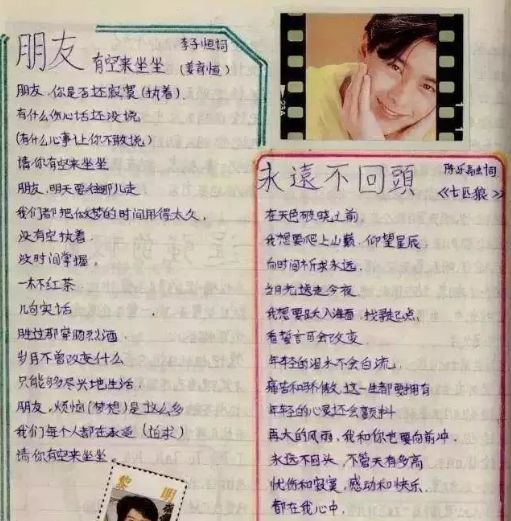 朋友
李子恒词
有空来坐坐 (姜育恒)
朋友,你是否还寂寞(执着)
有什么伤心话还没说
(有什么心事让你不敢说)
请你有空来坐坐
朋友,明天要往哪儿走
我们都把做梦的时间用得太久,
没有空执着.
没时间掌握.
一杯红茶
几句实话
胜过那穿肠烈酒.
岁月不曾改变什么
只能够尽兴地生活.
朋友,烦恼(梦想)是这么多
我们每个人都在承受(追求)
请你有空来坐坐.
黎 明
永遠不回頭
词
《七匹狼》
在天色破晓之前.
我想要爬上山巅,仰望星辰
向时间祈求永远.
当月光送走今夜
我想要跃入海面,找寻起点,
看誓言可会改变
年轻的泪水不会白流,
痛苦和骄傲,这一生都要拥有
年轻的心灵还会颤抖
再大的风雨,我和你也要向前冲.
永远不回头,不管天有多高
忧伤和寂寞,感动和快乐.
都在我心中.